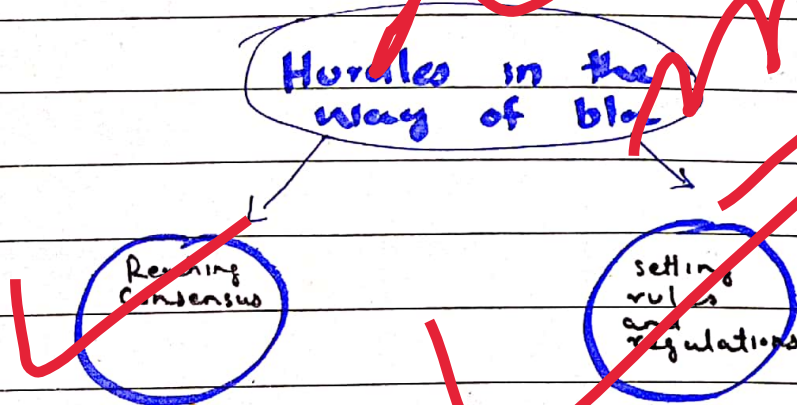 Hurdles in the
way of blo
Reaching
Consensus
setting
rules
and
regulations